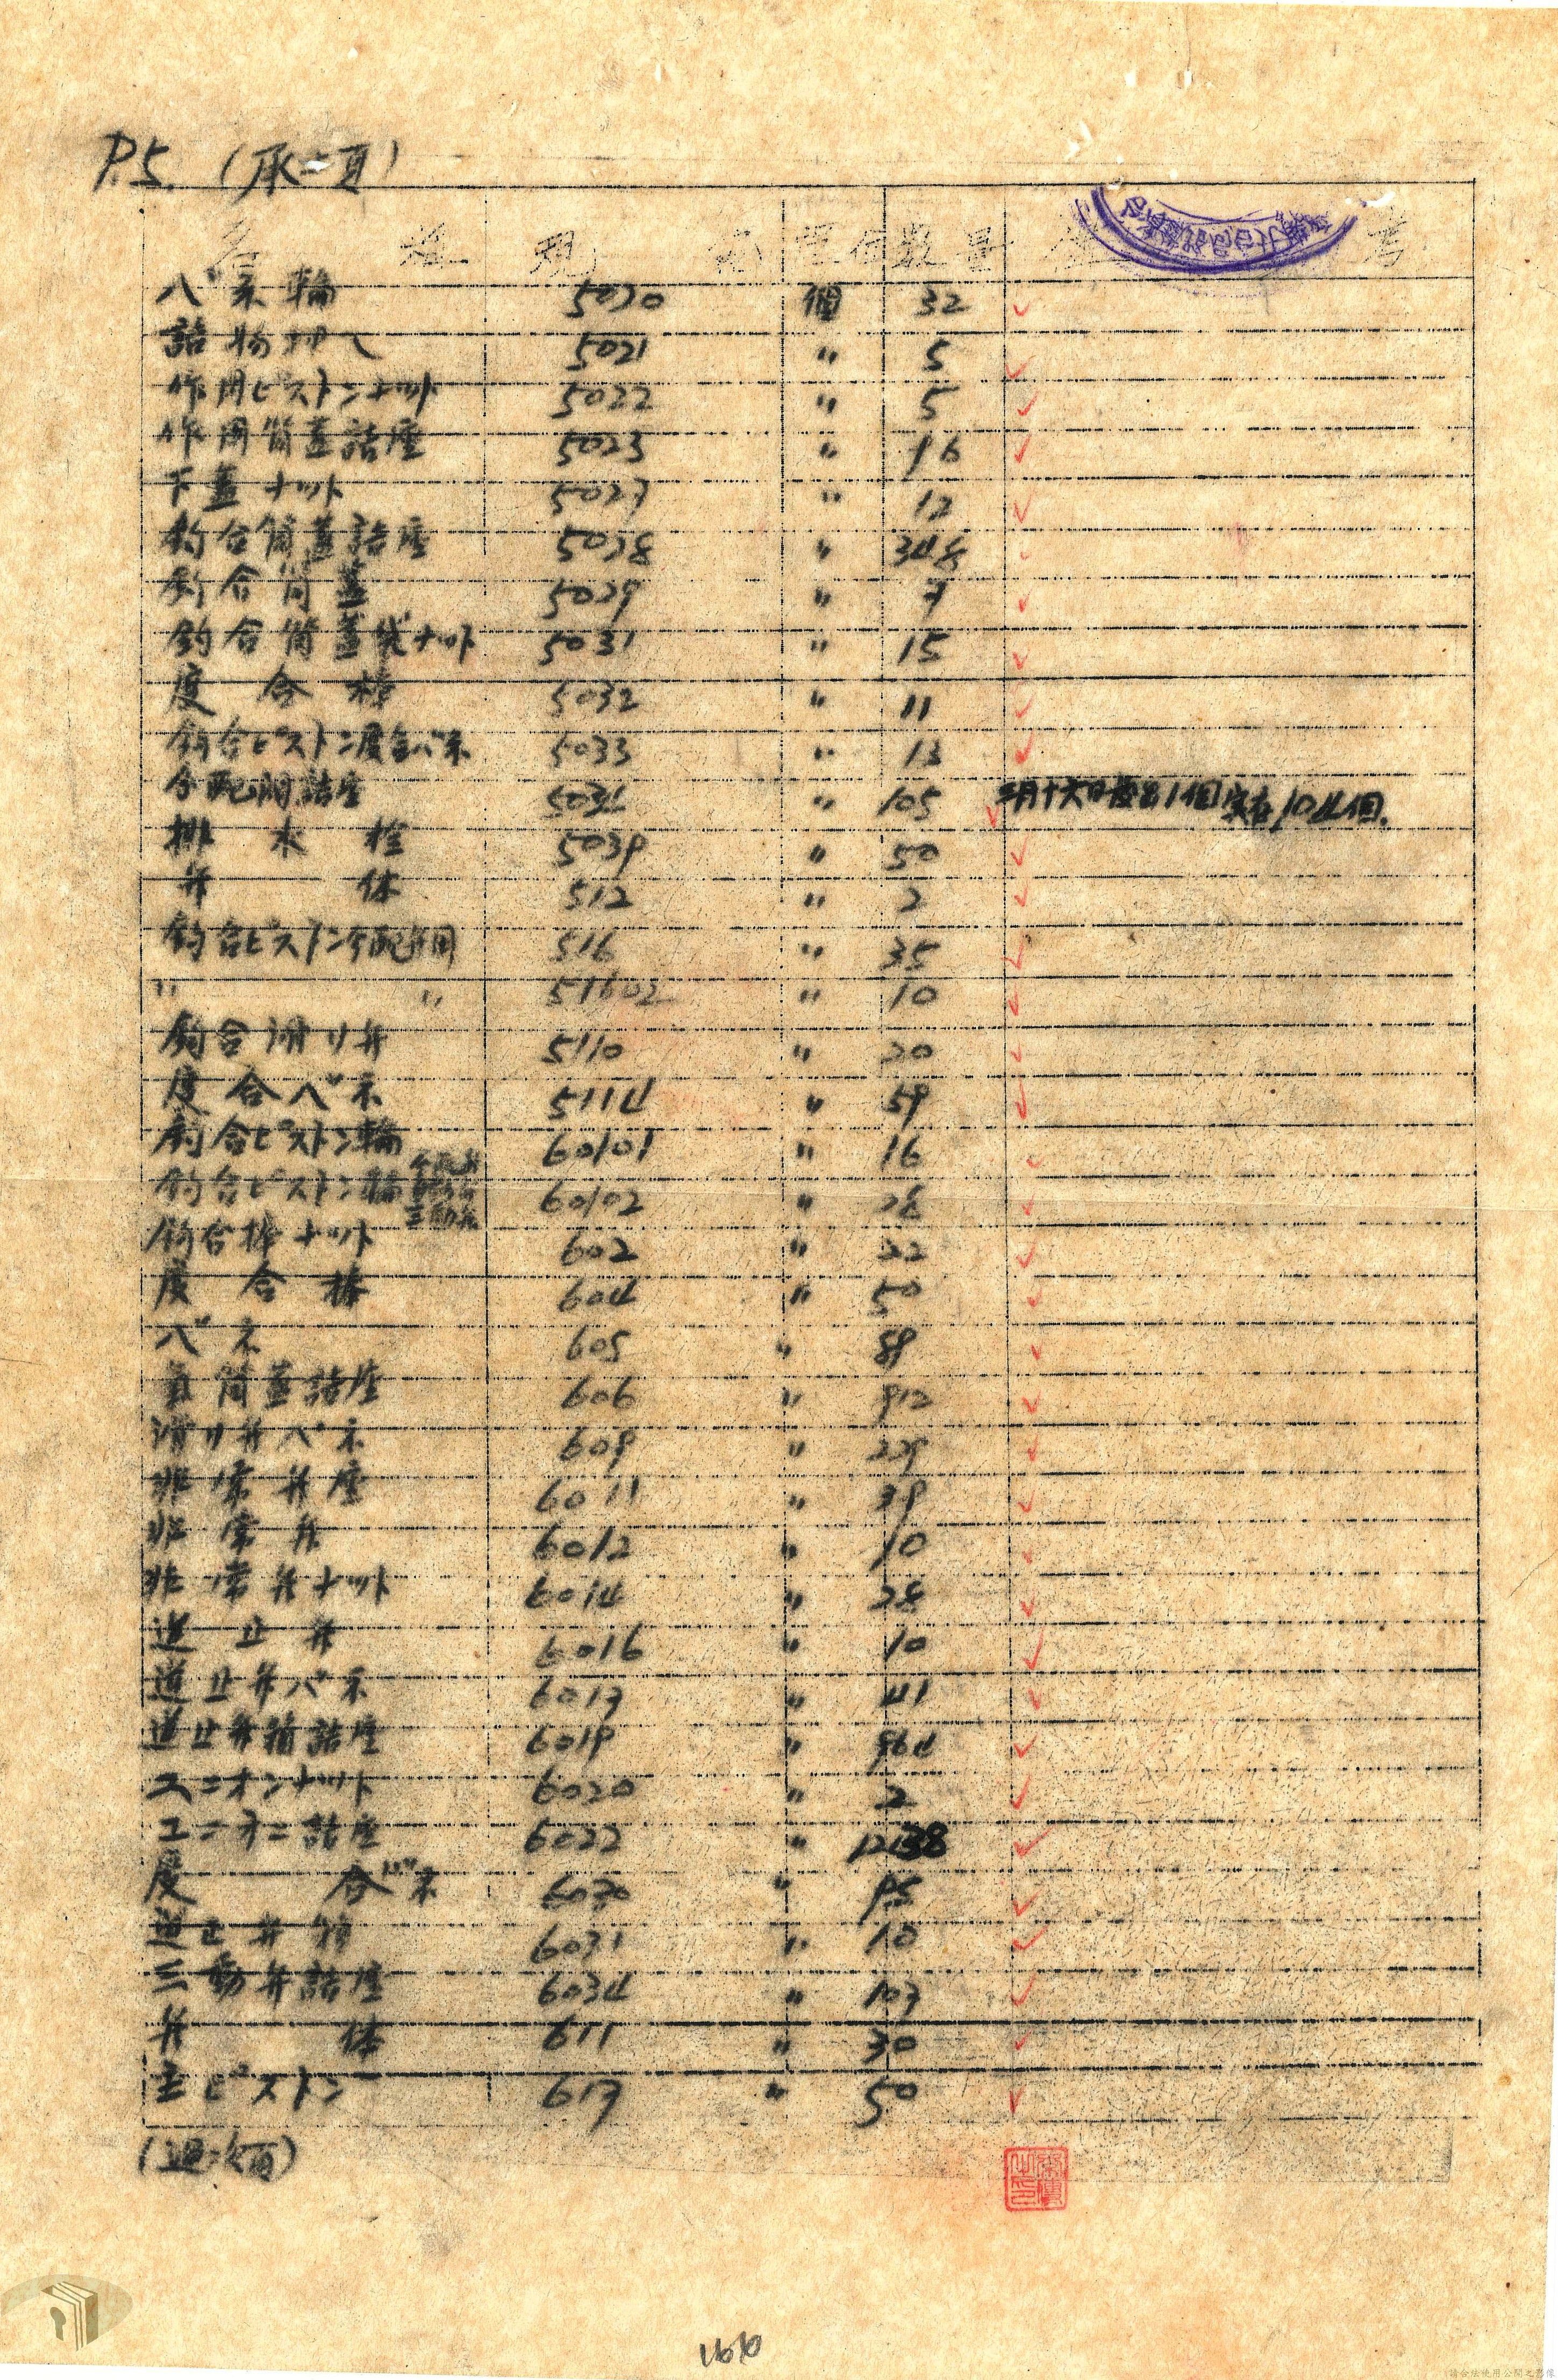 P.5. (承二頁)
名 稱 規 範 單位 數量 備 考
バネ輪 5020 個 32
詰物押へ 5021 〃 5
作用ピストンナット 5022 〃 5
作用筒蓋詰座 5023 〃 16
下蓋ナット 5027 〃 12
釣合筒蓋詰座 5028 〃 348
釣合筒蓋 5029 〃 7
釣合筒蓋袋ナット 5031 〃 15
度合棒 5032 〃 11
釣合ピストン度合バネ 5033 〃 13
分配閥詰座 5034 〃 105 三月十六日撥出1個實存104個.
排水栓 5039 〃 50
弁体 512 〃 2
釣合ピストン分配弁用 516 〃 35
〃 〃 51602 〃 10
釣合滑リ弁 5110 〃 20
度合バネ 5114 〃 59
釣合ピストン輪 60101 〃 16
釣合ピストン輪 60102 〃 28
釣合棒ナット 602 〃 22
度合棒 604 〃 50
バネ 605 〃 89
氣筒蓋詰座 606 〃 912
滑リ弁バネ 609 〃 229
非常弁座 6011 〃 39
非常弁 6012 〃 10
非常弁ナット 6014 〃 28
逆止弁 6016 〃 10
逆止弁バネ 6017 〃 41
逆止弁箱詰座 6019 〃 964
ユニオンナット 6020 〃 2
ユニオン詰座 6022 〃 12138
度合バネ 6030 〃 95
逆止弁箱 6031 〃 10
三動弁詰座 6034 〃 107
弁体 611 〃 30
主ピストン 617 〃 50
(過次頁)
166